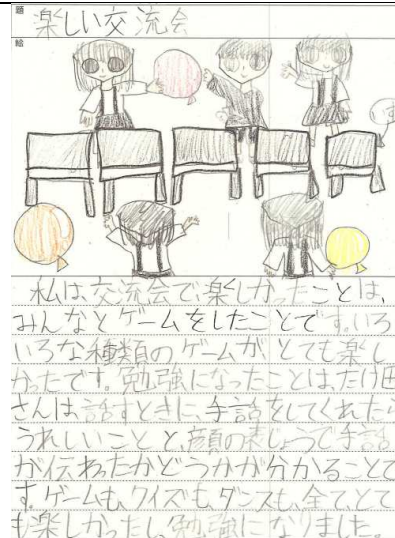 題
楽しい交流会
絵
私は、交流会で、楽しかったことは、
みんなとゲームをしたことです。いろ
いろな種類のゲームが、とても楽し
かったです。勉強になったことは、たけ田
さんは、話すときに、手話をしてくれたら
うれしいことと、顔の表じょうで手話
が伝わったかどうかが分かることで
す。ゲームも、クイズも、ダンスも、全て、とて
も楽しかったし、勉強になりました。